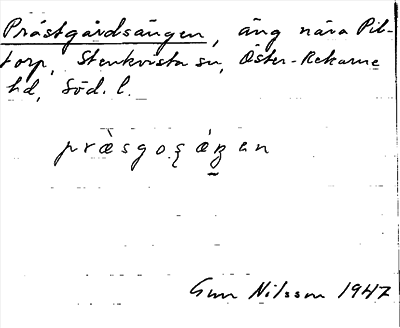 Prästgårdsängen, äng nära Pil-
torp, Stenkvista sn, Öster-Rekarne
hd, Söd. l.
præ̀sgoʂǽŋan
Gun Nilsson 1947